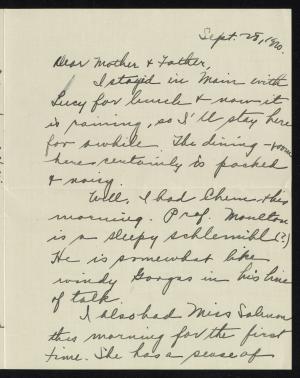 Sept. 28, 1920.
Dear Mother & Father,
I stayed in Main with
Lucy for lunch & now it
is raining, so I'll stay here
for awhile. The dining-room
here certainly is packed
& noisy.
Well, I had Chem. this
morning. Prof. Moulton
is a sleepy schlemihl (?)
He is somewhat like
windy Gorgas in his line
of talk.
I also had Miss Salmon
this morning for the first
time. She has a sense of